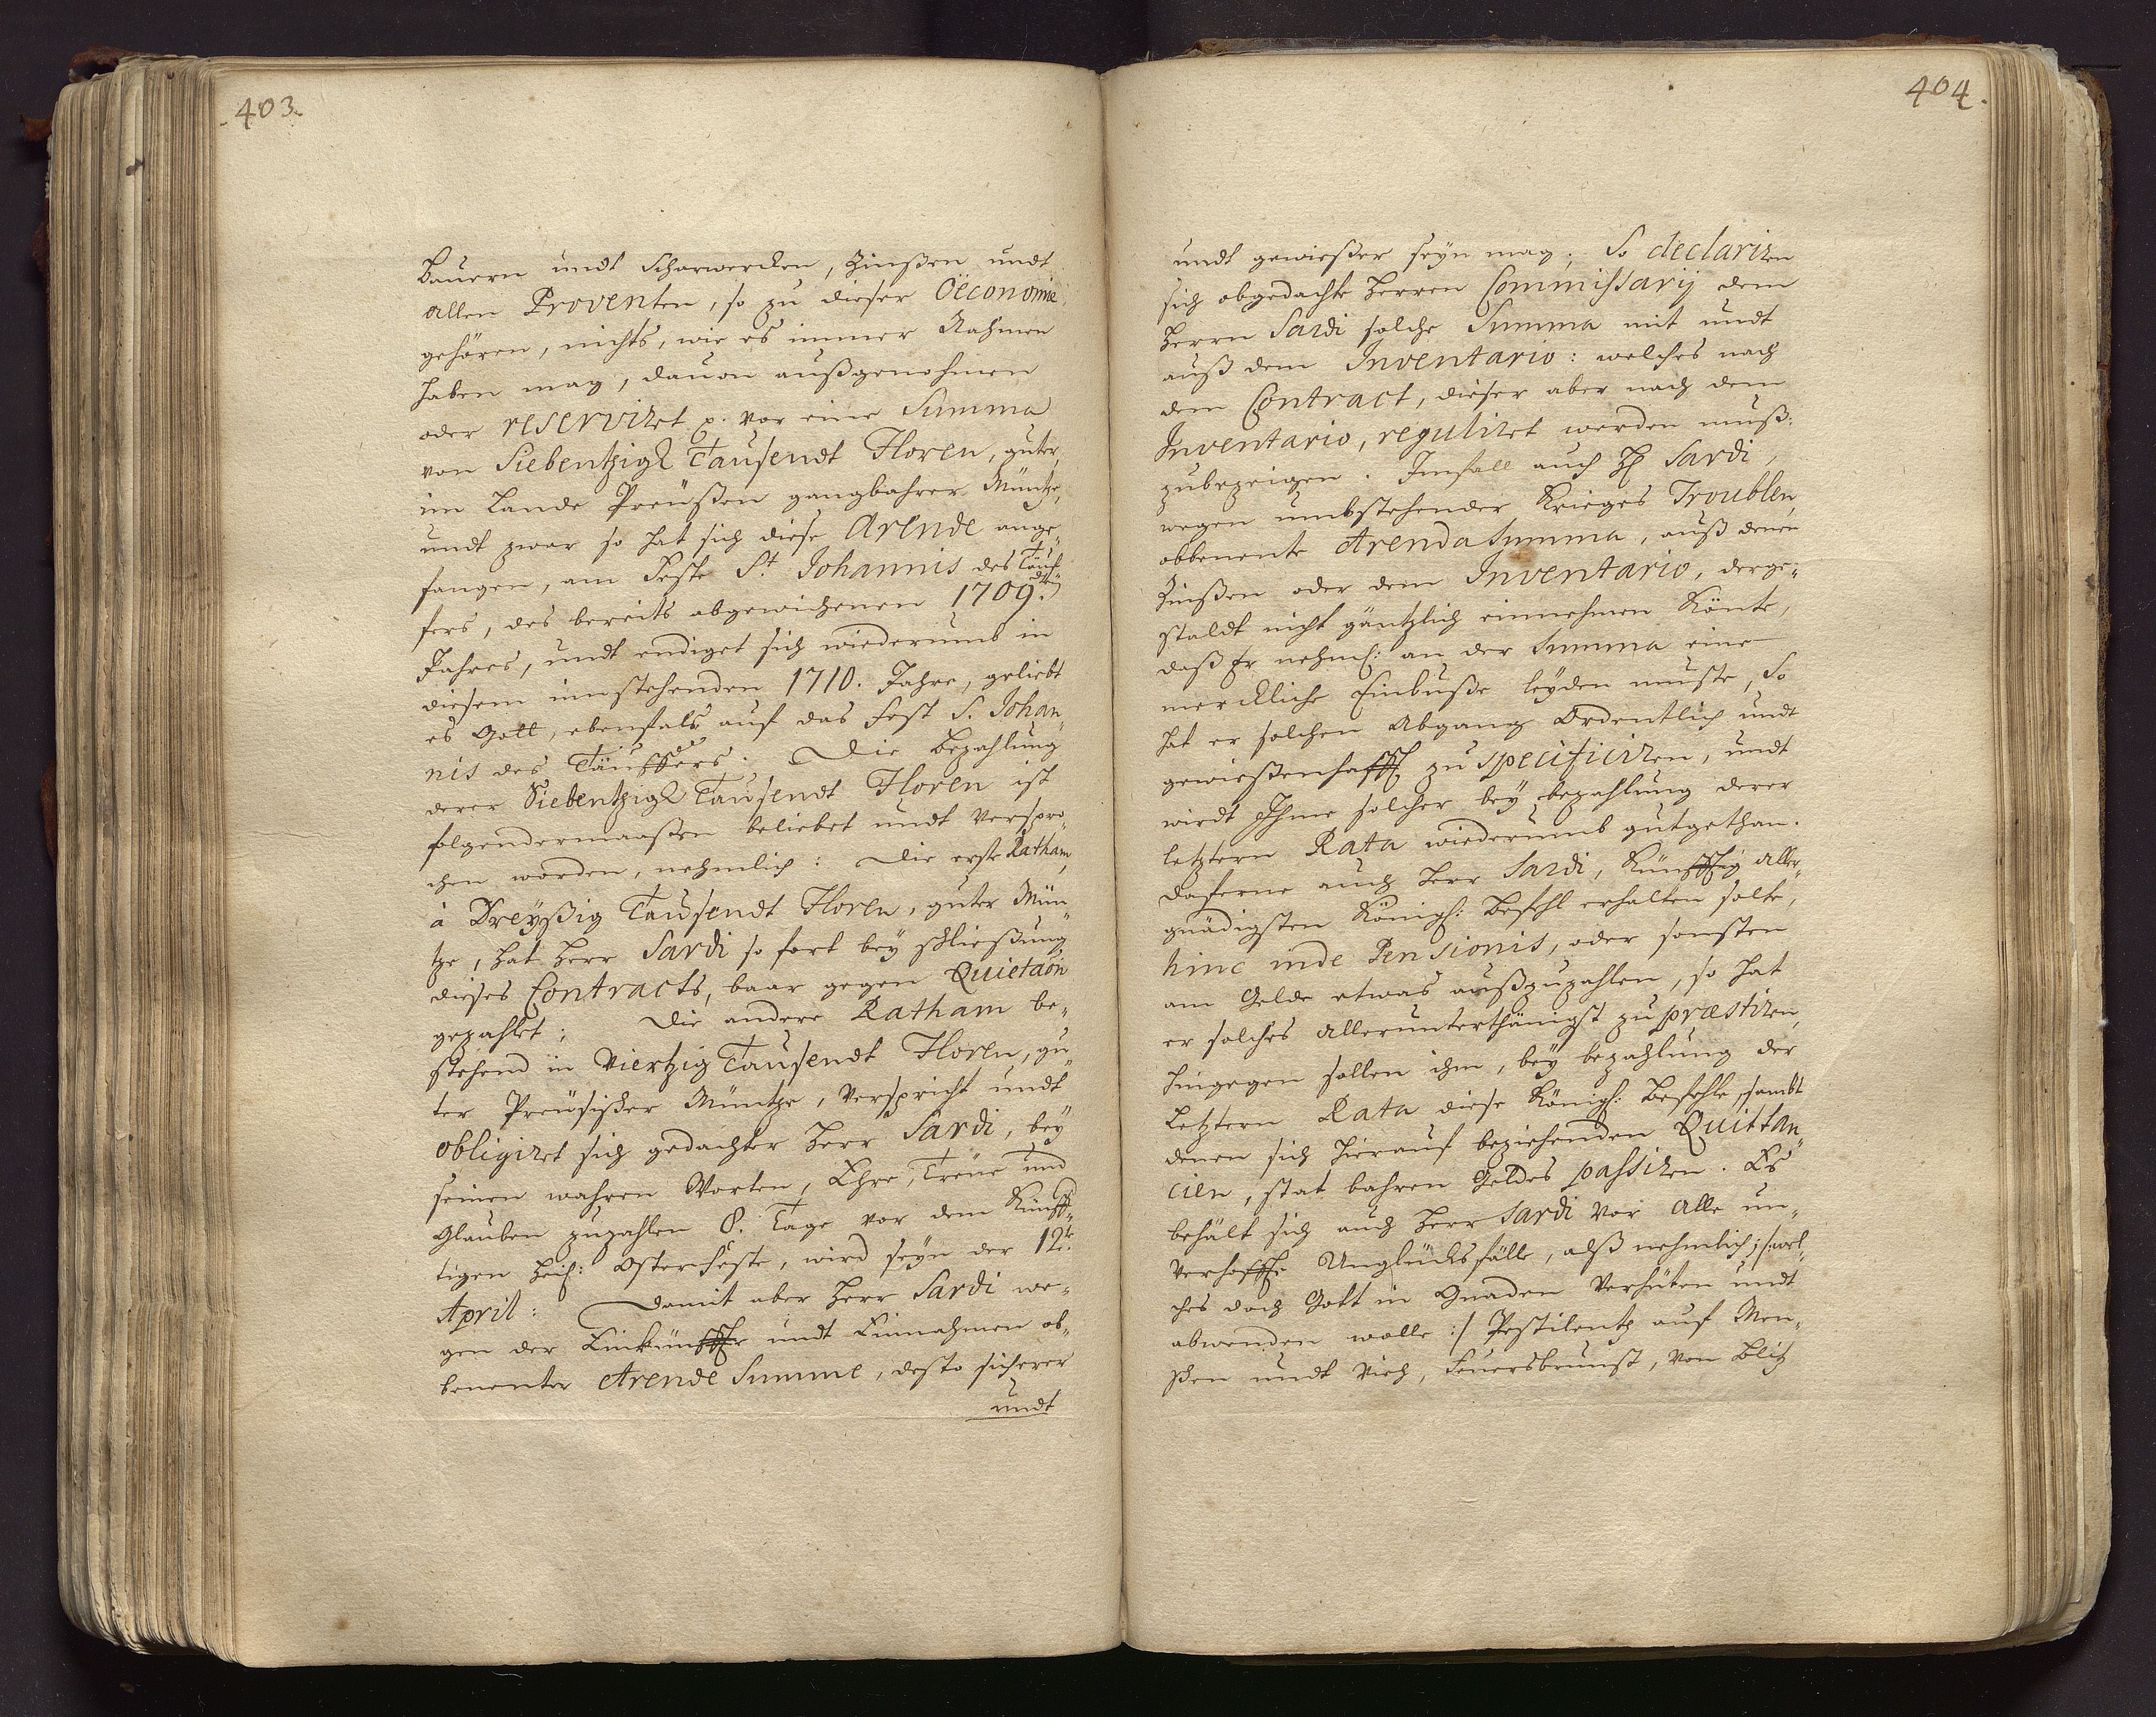 403.
Bauern undt Scharwercken, Zinßen undt
allen Proventen, so zu dieser Öeconomie
gehören, nichts, wie es immer Nahmen
haben mag, dauon außgenohmen
oder reserviret p. vor eine Summa
von Siebentzigk Tausendt Floren, guter,
im Lande Preüßen gangbahrer Müntze,
undt zwar so hat sich diese Arende ange„
fangen, am Feste St. Johannis des Täuf„
fers, des bereits abgewichenen 1709.ten
Jahres, undt endiget sich wiederumb in
diesem innstehenden 1710. Jahre, geliebt
es Gott, ebenfals auf das Fest S. Johan„
nis des Täuffers. Die Bezahlung
derer Siebentzigk Tausendt Floren ist
folgendermaaßen beliebet undt verspro„
chen worden, nehmlich: Die erste Ratham,
à Dreyßig Tausendt Floren, guter Mün„
tze, hat Herr Sardi so fort bey schließung
dieses Contracts, baar gegen Quietaōn
gezahlet; Die andere Ratham be„
stehend in Viertzig Tausendt Floren, gu„
ter Preüsischer Müntze, verspricht undt
obligiret sich gedachter Herr Sardi, bey
seinen wahren Worten, Ehre, Treüe und
Glauben zuzahlen 8. Tage vor dem Künff„
tigen Heil: Osterfeste, wird seyn der 12te
April: Damit aber Herr Sardi we„
gen der Einkünffte undt Einnahmen ob„
benenter Arende Summe, desto sicherer
undt
404.
undt gewießer seyn mag; So declariren
sich obgedachte Herren Commissarij dem
Herrn Sardi solche Summa mit undt
auß dem Inventario: welches nach
dem Contract, dieser aber nach dem
Inventario, reguliret werden muß:
zubezeigen. Imfall auch H. Sardi,
wegen umbstehender Krieges Troublen,
obbenente Arenda Summa, auß denen
Zinßen oder dem Inventario, derge„
staldt nicht gäntzlich einnehmen Könte,
daß Er nehml: an der Summa eine
merckliche Einbuße leyden muste, So
hat er solchen Abgang Ordentlich undt
gewießenhafft zu specificiren, undt
wirdt Ihme solcher bey bezahlung derer
letztern Rata wiederumb gutgethan.
Daferne auch Herr Sardi, Künfftig aller„
gnädigsten Königl: Befehl erhalten solte,
hinc inde Pensionis, oder sonsten
am Gelde etwas außzuzahlen, so hat
er solches allerunterthänigst zu præstiren,
hingegen sollen ihm, bey bezahlung der
Letztern Rata diese Königl: Befehle, sambt
denen sich hierauf beziehenden Quittan„
cien, stat bahren Geldes passiren. Es
behält sich auch Herr Sardi vor alle un„
verhoffte Unglücksfälle, alß nehmlich; /:wel„
ches doch Gott in Gnaden verhüten undt
abwenden wolle :/ Pestilentz auf Men„
schen undt Vieh, Feuersbrunst, von Blitz